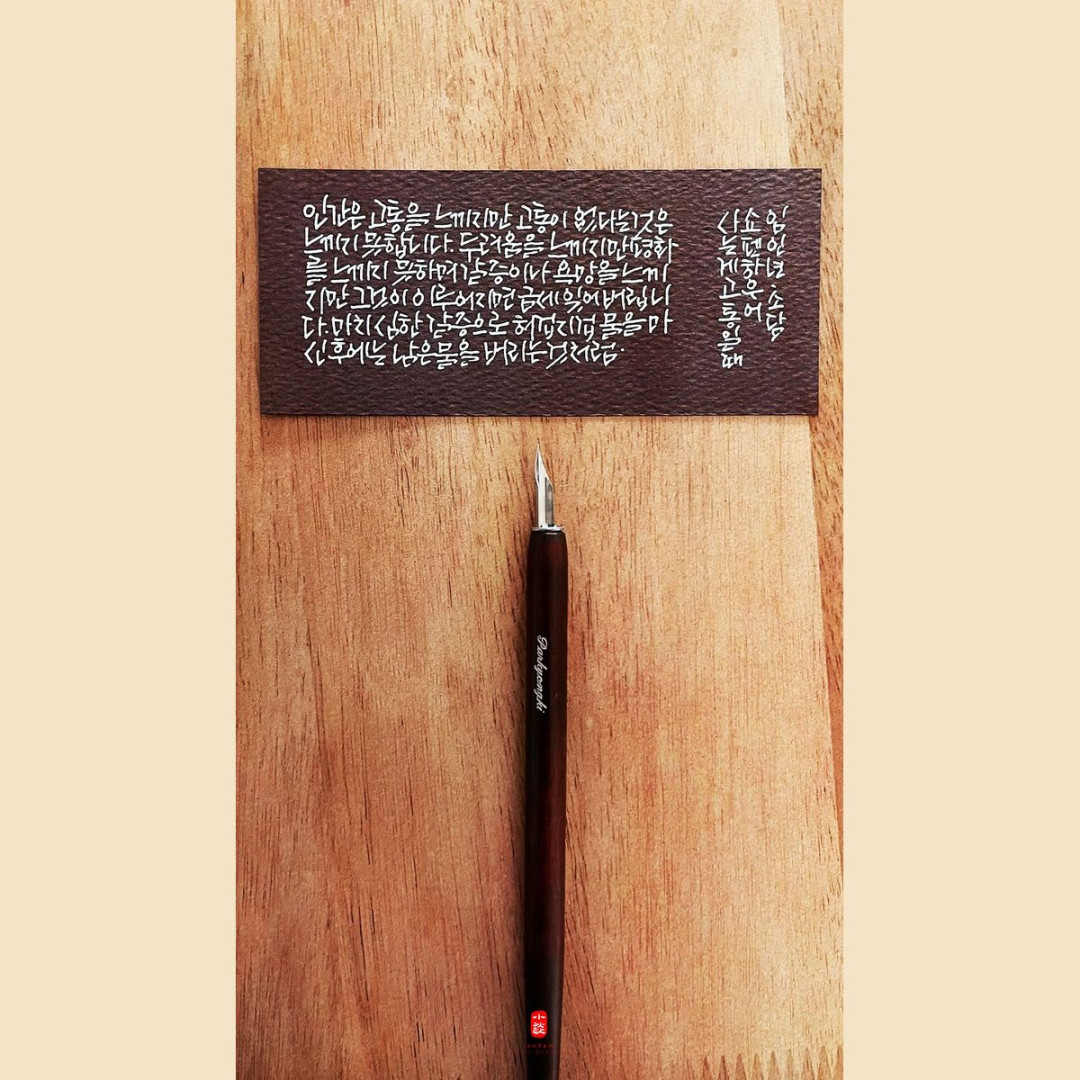 인간은 고통을 느끼지만 고통이 없다는것은
느끼지 못합니다. 두려움을 느끼지만 평화
를 느끼지 못하며 갈증이나 욕망을 느끼
지만 그것이 이루어지면 금세 잊어버립니
다. 마치 심한 갈증으로 허겁지겁 물을 마
신후에는 남은물을 버리는것처럼.
사는게 고통일때
쇼펜하우어
임인년. 소담
Parkyongki
小談